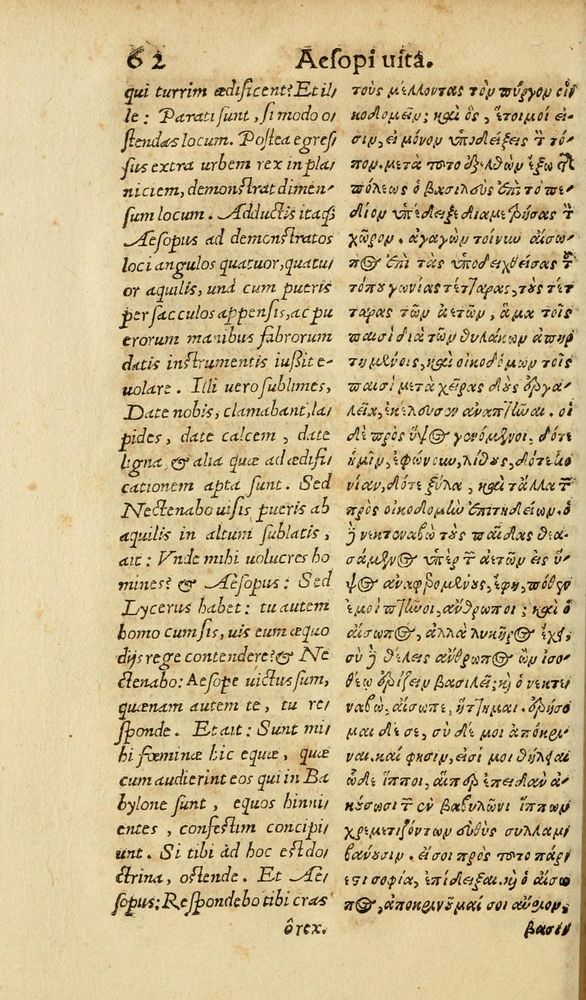 62 Aesopi uita.
qui turrim ædificent? Et il-
le: Parati sunt, si modo o-
stendas locum. Postea egres-
sus extra urbem rex in pla-
niciem, demonstrat dimen-
sum locum. Adductis itaq;
Aesopus ad demonstratos
loci angulos quatuor, quatu-
or aquilis, unà cum pueris
per sacculos appensis, ac pu-
erorum manibus fabrorum
datis instrumentis iußit e-
uolare. Illi uero sublimes,
Date nobis, clamabant, la-
pides, date calcem, date
ligna, & alia quæ ad ædifi-
cationem apta sunt. Sed
Nectenabo uisis pueris ab
aquilis in altum sublatis,
ait: Vnde mihi uolucres ho-
mines? & Aesopus: Sed
Lycerus habet: tu autem
homo cum sis, uis cum æquo
dijs rege contendere? & Ne-
ctenabo: Aesope uictus sum,
quænam autem te, tu re-
sponde. Et ait: Sunt mi-
hi fœminæ hic equæ, quæ
cum audierint eos qui in Ba-
bylone sunt, equos hinni-
entes, confestim concipi-
unt. Si tibi ad hoc est do-
ctrina, ostende. Et Ae-
sopus: Respondebo tibi cras
ô rex.
τοὺς μέλλοντας τὸν πύργον οἰ-
κοδομεῖν; καὶ ὃς, ἕτοιμοί εἰ-
σιν, εἰ μόνον ὑποδείξεις τὸν τό-
πον. μετὰ τοῦτο ἐξελθὼν ἔξω τῆς
πόλεως ὁ βασιλεὺς ἐπὶ τὸ πε-
δίον ὑπέδειξε διαμετρήσας τὸν
χῶρον. ἀγαγὼν τοίνυν αἴσω-
πος ἐπὶ τὰς ὑποδειχθείσας τοῦ
τόπου γωνίας τέτταρας, τοὺς τέτ-
ταρας τῶν ἀετῶν, ἅμα τοῖς
παισὶ διὰ τῶν θυλάκων ἀπηρ-
τημένοις, καὶ οἰκοδόμων τοῖς
παισὶ μετὰ χεῖρας δοὺς ἐργα-
λεῖα, ἐκέλευσεν ἀναπτῆναι. οἱ
δὲ πρὸς ὕψος γενόμενοι, δότε
ἡμῖν, ἐφώνουν, λίθους, δότε κο-
νίαν, δότε ξύλα, καὶ τἄλλα τῶν
πρὸς οἰκοδομὴν ἐπιτηδείων. ὁ
δὲ νεκτεναβὼ τοὺς παῖδας θεα-
σάμενος ὑπὸ τῶν ἀετῶν εἰς ὕ-
ψος ἀναφερομένους, ἔφη, πόθεν
ἐμοὶ πτηνοὶ ἄνθρωποι; καὶ ὁ
αἴσωπος, ἀλλὰ λυκῆρος ἔχει,
σὺ δὲ θέλεις ἄνθρωπος ὢν ἰσο-
θέῳ ἐρίζειν βασιλεῖ; καὶ ὁ νεκτε-
ναβὼ, αἴσωπε, ἥττημαι. ἐρήσο-
μαι δέ σε, σὺ δέ μοι ἀπόκρι-
ναι. καί φησιν, εἰσί μοι θήλειαι
ὧδε ἵπποι, αἵπερ ἐπειδὰν ἀ-
κούσωσι τῶν ἐν βαβυλῶνι ἵππων
χρεμετιζόντων εὐθὺς συλλαμ-
βάνουσιν. εἴ σοι πρὸς τοῦτο πάρ-
εστι σοφία, ἐπίδειξαι. καὶ ὁ αἴσω-
πος, ἀποκρινοῦμαί σοι αὔριον,
βασι-